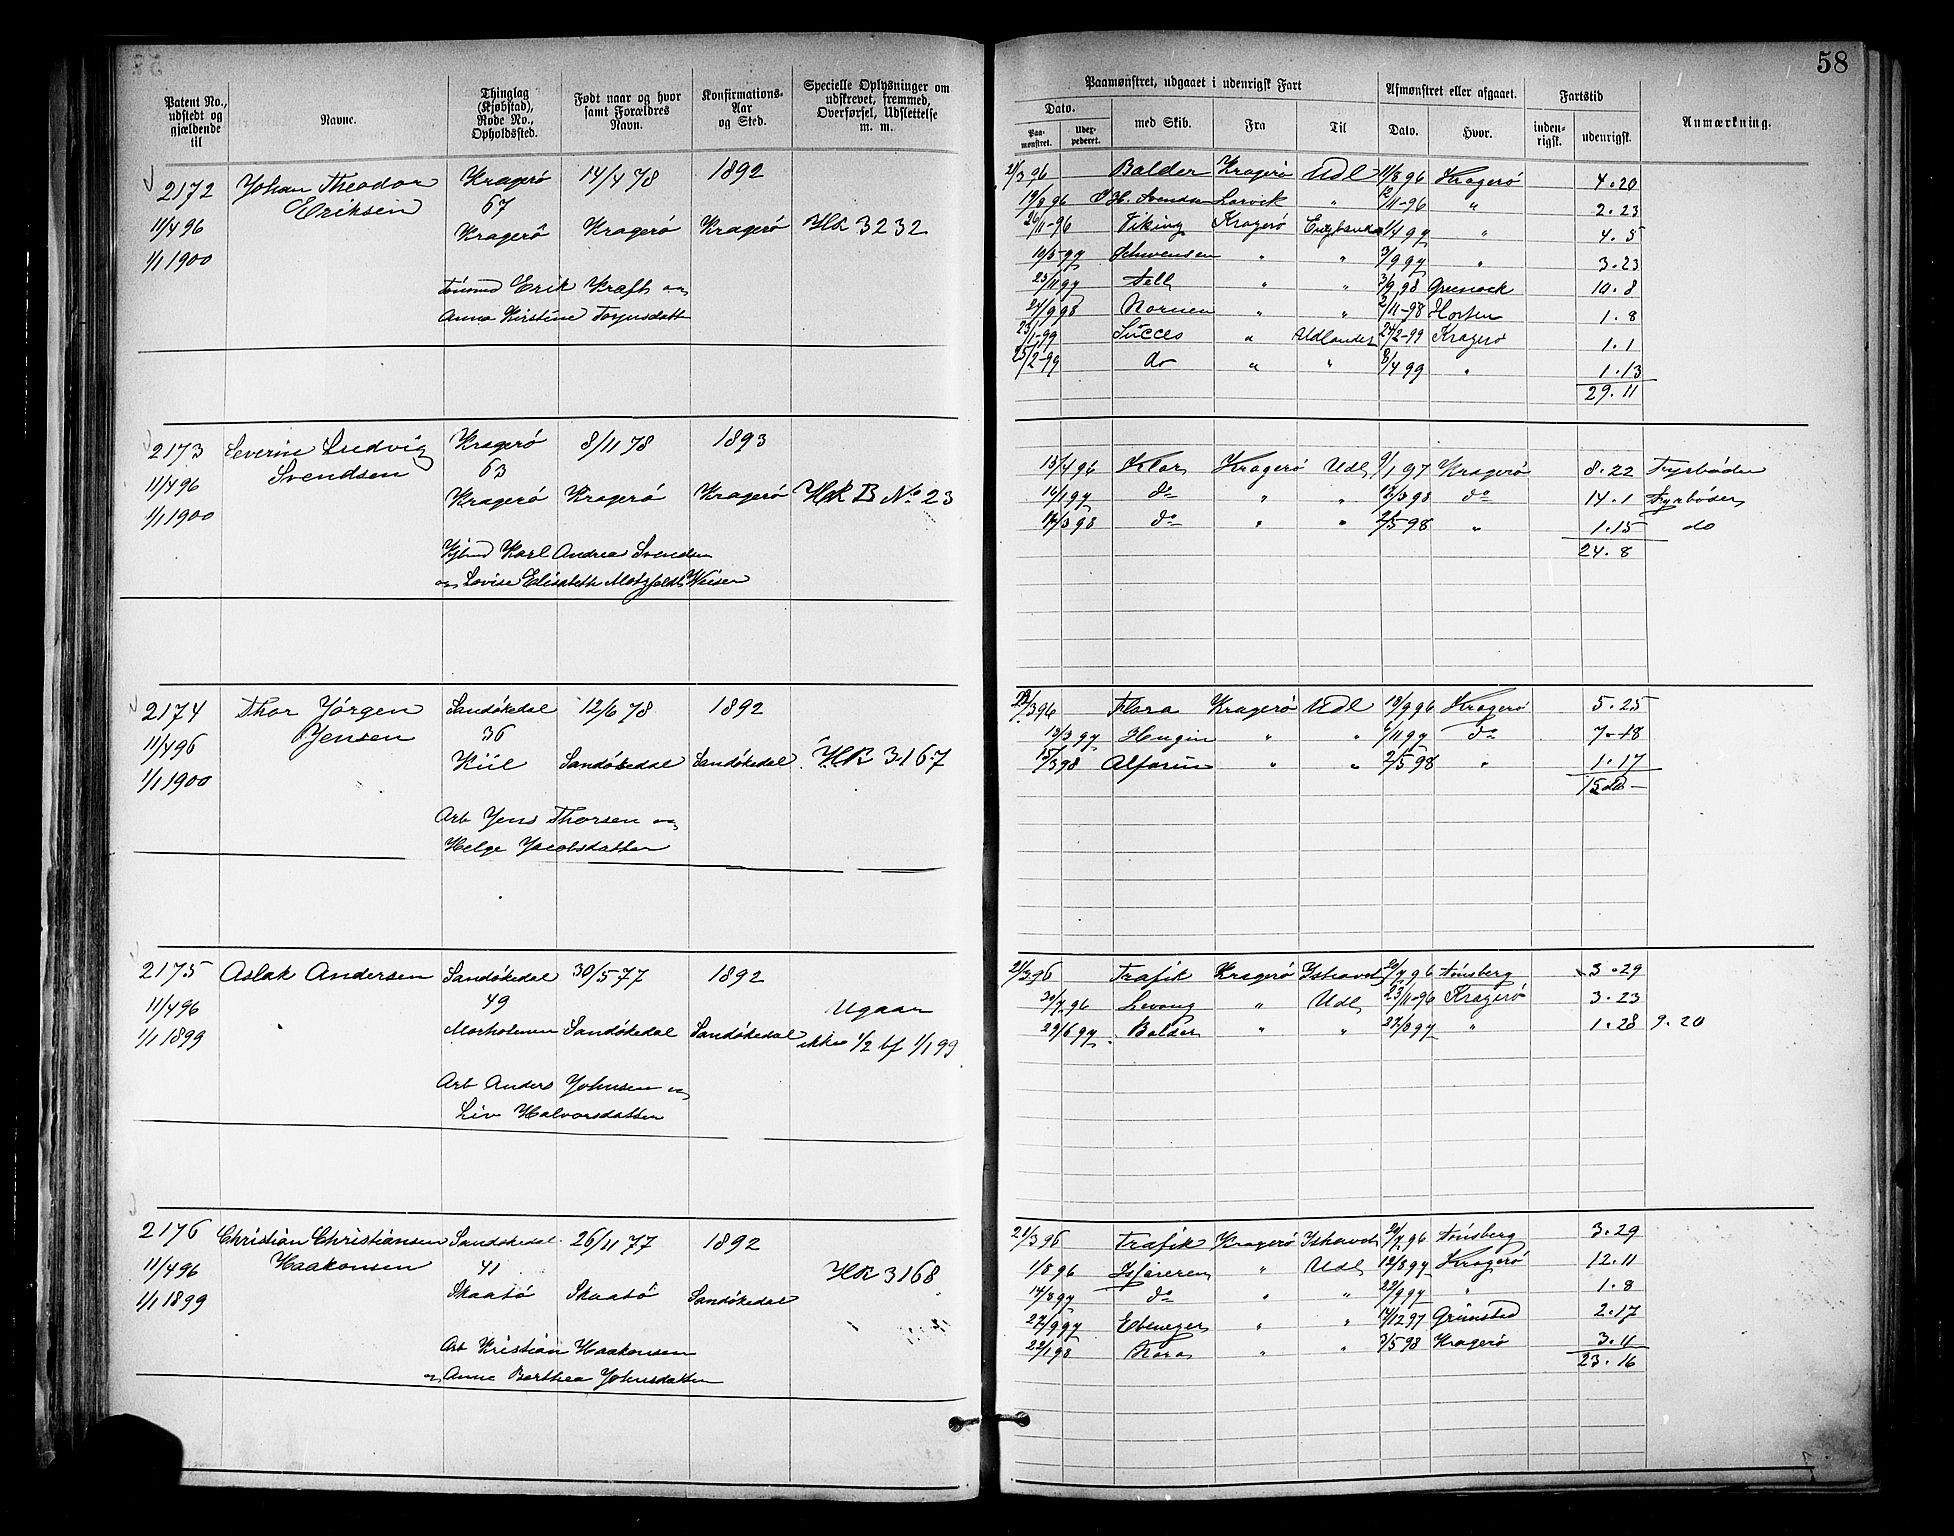 58
Patent No., udstedt og gjældende til
Navne.
Thinglag (Kjøbstad), Rode No., Opholdssted.
Født naar og hvor samt Forældres Navn.
Konfirmations-Aar og Sted.
Specielle Oplysninger om udskrevet, fremmed, Overførsel, Udslettelse m. m.
Paamønstret, udgaaet i udenrigsk Fart
Dato.
Paa-mønstret.
Udex-pederet.
med Skib.
Fra
Til
Afmønstret eller afgaaet.
Dato.
Hvor.
Fartstid
inden-rigsk.
udenrigsk.
Anmærkning.
2172 Johan Theodor Kragerö 14/4 78 1892
Eriksen 67
11/4 96 Kragerö Kragerö Kragerö HR 3232
1/1 1900
Erik Kraft og
Anna Kirstine
21/3 96 Balder Kragerö Udl 11/8 96 Kragerö 4.20
19/8 96 Larvik " 12/11-96 " 2.23
26/11-96 Viking Kragerö " 4.5
10/5-97 Schwensen " " 3/9 97 " 3.23
25/11 97 " " 3/9 98 Greenock 10.8
24/9 98 Nornen " " 2/11-98 Horten 1.8
Succes " Udlandet 24/2-99 Kragerö 1.1
25/2-99 do " " 8/4 99 " 1.13
29.11
2173 Severin Ludvig Kragerö 8/11 78 1893
Svendsen 63
11/4 96 Kragerö Kragerö Kragerö HR B No 23
1/1 1900
Karl Andrea Svendsen
og Lovise Elisabeth Motzfeldt
15/4 96 Klar Kragerö Udl 9/1 97 Kragerö 8.22 Fyrböder
16/1 97 do " " 12/3 98 do 14.1 Fyrböder
17/3 98 do " " 2/5 98 " 1.15 do
24.8
2174 Thor Jörgen Sandökedal 12/6 78 1892
Jensen 36
11/4 96 Kiil Sandökedal Sandökedal HR 3167
1/1 1900
Arb Jens Thorsen og
Helge Jacobsdatter
Flora Kragerö Udl 19/9 96 Kragerö 5.25
13/3 97 Hugin " " 6/11 97 do 7.18
15/3 98 Alfarin " " 2/5 98 " 1.17
2175 Aslak Andersen Sandökedal 30/5 77 1892
11/4 96 49 Ugaar
1/1 1899 Morholmen Sandökedal Sandökedal ikke 1/2 bf 1/1 99
Arb Anders Johnsen og
Liv Halvorsdatter
21/3 96 Trafik Kragerö Ishavet 20/7 96 Tönsberg 3.29
30/7 96 Levang " Udl 23/11-96 Kragerö 3.23
29/6 97 Balder " " 27/8 97 " 1.28 9.20
2176 Christian Christiansen Sandökedal 26/11 77 1892
Haakonsen 41
11/4 96 Skaatö Skaatö Sandökedal HR 3168
1/1 1899
Arb Kristian Haakonsen
og Anne Berthea Johnsdatter
21/3 96 Trafik Kragerö Ishavet 20/7 96 Tönsberg 3.29
1/8 96 " Udl 12/8 97 Kragerö 12.11
14/8 97 do " " 22/9 97 " 1.8
27/9 97 Ebenezer " " 14/12 97 Grimstad 2.17
22/1 98 Nora " " 3/5 98 Kragerö 3.11
23.16